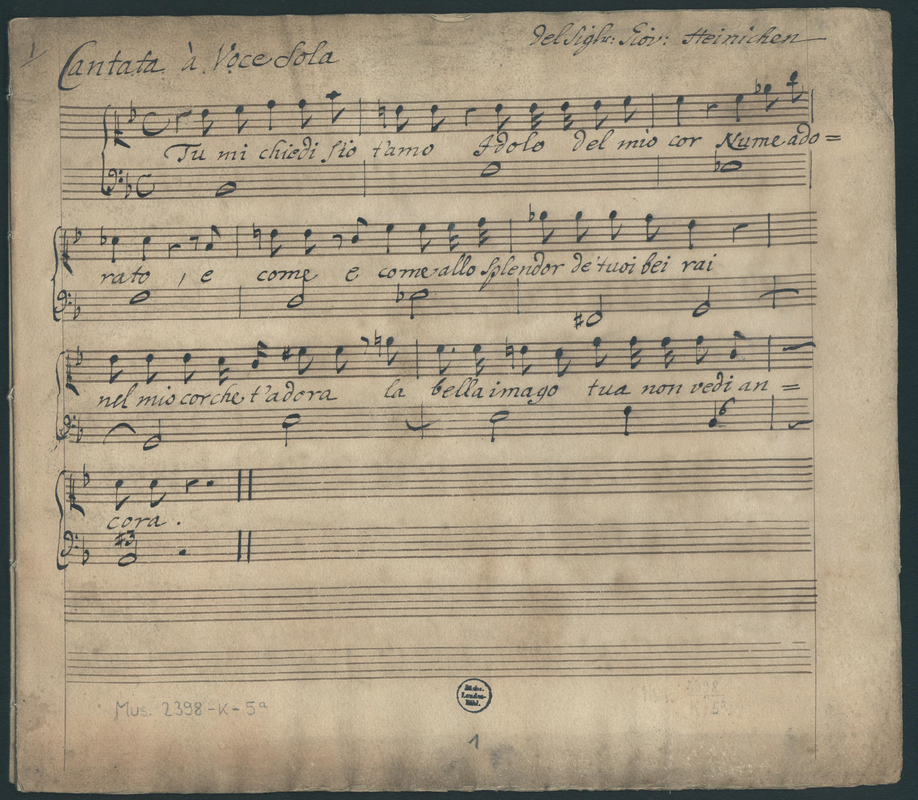 1
Del Sigħr: Giov: Heinichen
Cantata à Voce Sola
Tu mi chiedi s'io t'amo Idolo del mio cor Nume ado=
rato, e come e come allo splendor de'tuoi bei rai
nel mio cor che t'adora la bella imago tua non vedi an=
cora.
Mus. 2398-K-5a
Sächs.
Landes-
Bibl.
1